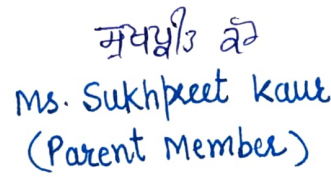 ਸੁਖਪ੍ਰੀਤ ਕੌਰ
Ms. Sukhpreet Kaur
(Parent Member)